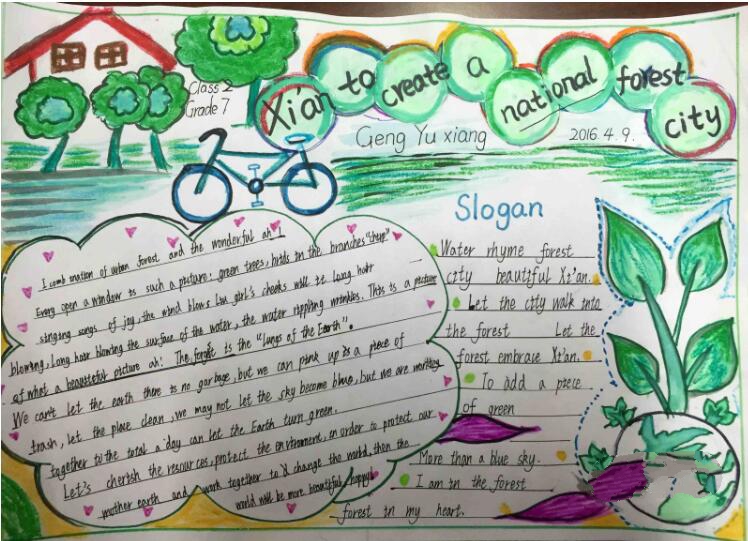 Class 2
Grade 7
Xi'an to create a national forest city
Geng Yu xiang
2016.4.9.
Slogan
Water rhyme forest
city beautiful Xi'an.
Let the city walk into
the forest Let the
forest embrace Xi'an.
To add a piece
of green
More than a blue sky.
I am in the forest
forest in my heart.
I comb nation of urban forest and the wonderful ah !
Every open a window is such a picture: green trees, birds in the branches "chirp"
singing songs of joy, the wind blows girl's cheeks will it long hair
blowing, long hair blowing the surface of the water, the water rippling wrinkles. This is a picture
of what a beautiful picture ah! The forest is the "lungs of the Earth".
We can't let the earth there is no garbage, but we can pink up is a piece of
trash, let the place clean, we may not let the sky become blue, but we are working
together to the total a day can let the Earth turn green.
Let's cherish the resources, protect the environment, in order to protect our
mother earth and work together to change the world, then the
world will be more beautiful happy!